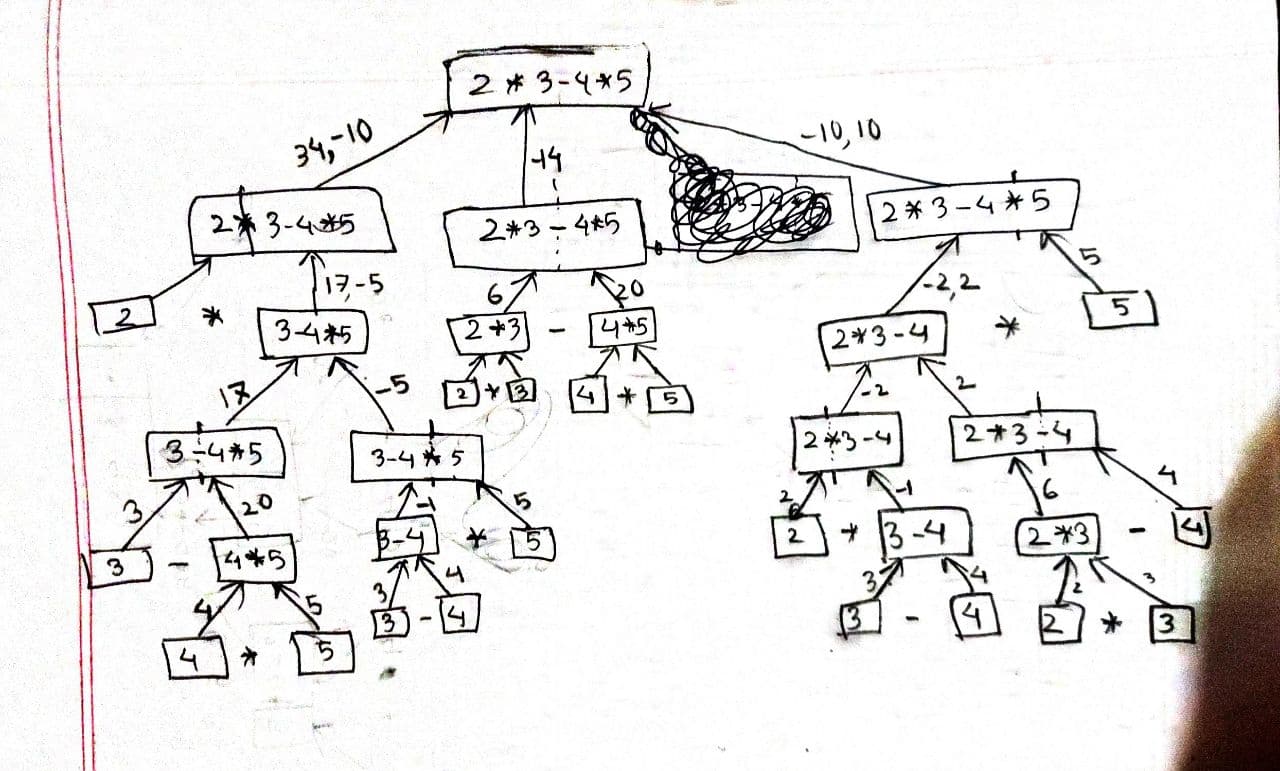 2 * 3-4*5
34,-10
-14
-10,10
2* 3-4*5
2*3-4*5
2*3-4*5
2
*
17,-5
6
20
-2,2
5
3-4*5
2*3 - 4*5
2*3-4
*
5
17
-5
2 * 3
4 * 5
-2
2
3-4*5
3-4*5
2*3-4
2*3-4
3
20
-1
5
2
-1
6
4
3 - 4*5
3-4 * 5
2 * 3-4
2*3 - 4
4
5
3
4
3
4
2
3
4 * 5
3 - 4
3 - 4
2 * 3